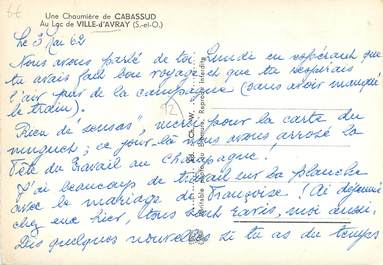 Une Chaumière de CABASSUD
Au Lac de VILLE-d'AVRAY (S.-et-O.)
Le 3 Mai 62
Nous avons parlé de toi Lundi en espérant que
tu avais fait bon voyage et que tu respirais
l'air pur de la campagne (sans avoir manqué
le train).
Rien de "sensas", merci pour la carte du
muguet; ce jour-là nous avons arrosé la
Fête du Travail au Champagne.
J'ai beaucoup de travail sur la planche
avec le mariage de Françoise! Ai déjeuné
chez eux hier, tous sont ravis, moi aussi.
Des quelques nouvelles si tu as du temps
Reproduction Interdite